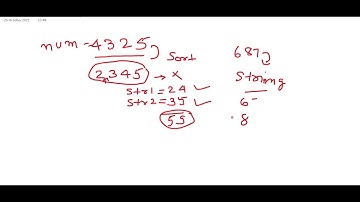 num = 4325
Sort
2345 → x
str1 = 24 ✓
str2 = 35 ✓
55
687
String
6
8